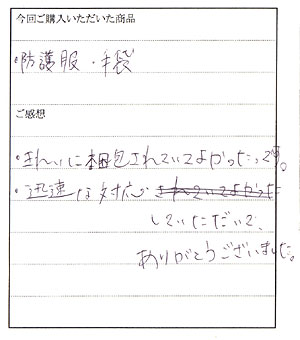 今回ご購入いただいた商品
・防護服・手袋
ご感想
・きれいに梱包されていてよかったです。
・迅速な対応 されていてよかった
していただいて、
ありがとうございました。